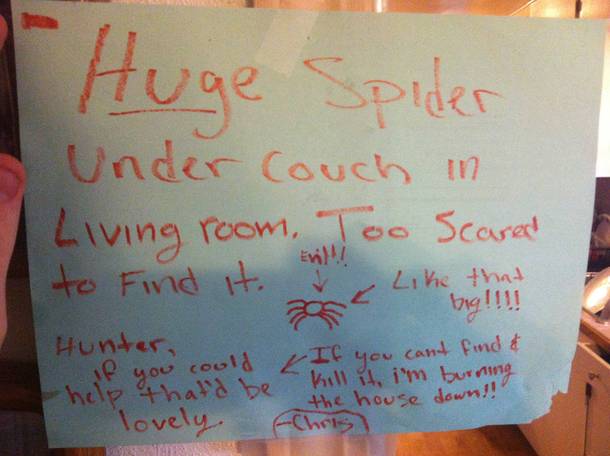 Huge Spider
Under Couch in
Living room. Too Scared
to Find it.
Evil!!
Like that
big!!!!
Hunter,
if you could
help that'd be
lovely.
If you cant find &
kill it, i'm burning
the house down!!
-Chris